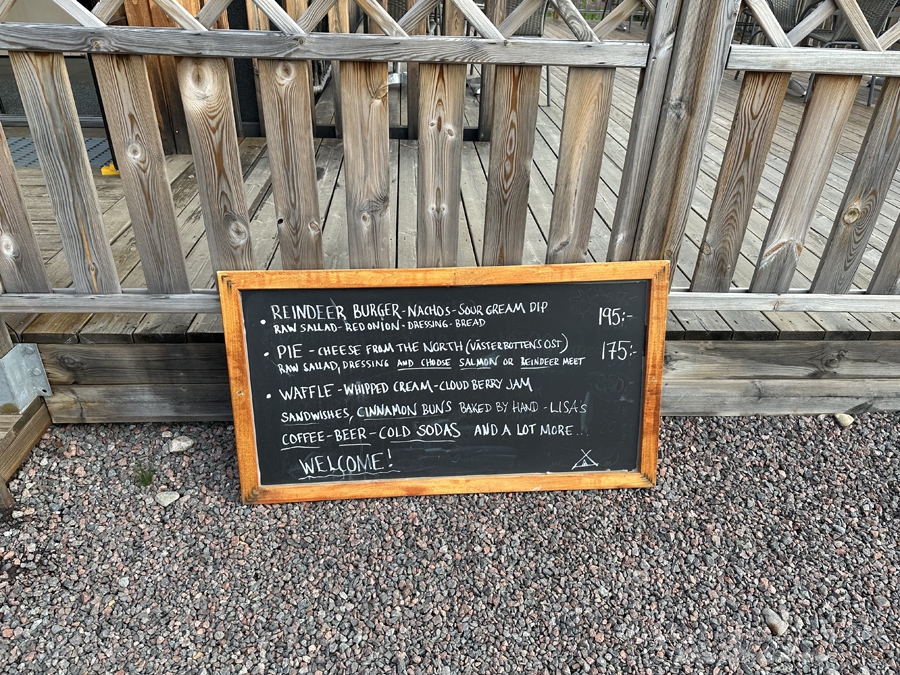 • REINDEER BURGER - NACHOS - SOUR CREAM DIP 195:-
RAW SALLAD - RED ONION - DRESSING - BREAD
• PIE - CHEESE FROM THE NORTH (VÄSTERBOTTENSOST) 175:-
RAW SALLAD, DRESSING AND CHOOSE SALMON OR REINDEER MEET
• WAFFLE - WHIPPED CREAM - CLOUD BERRY JAM
SANDWISHES, CINNAMON BUN'S BAKED BY HAND - LISA'S
COFFEE - BEER - COLD SODAS AND A LOT MORE...
WELCOME!